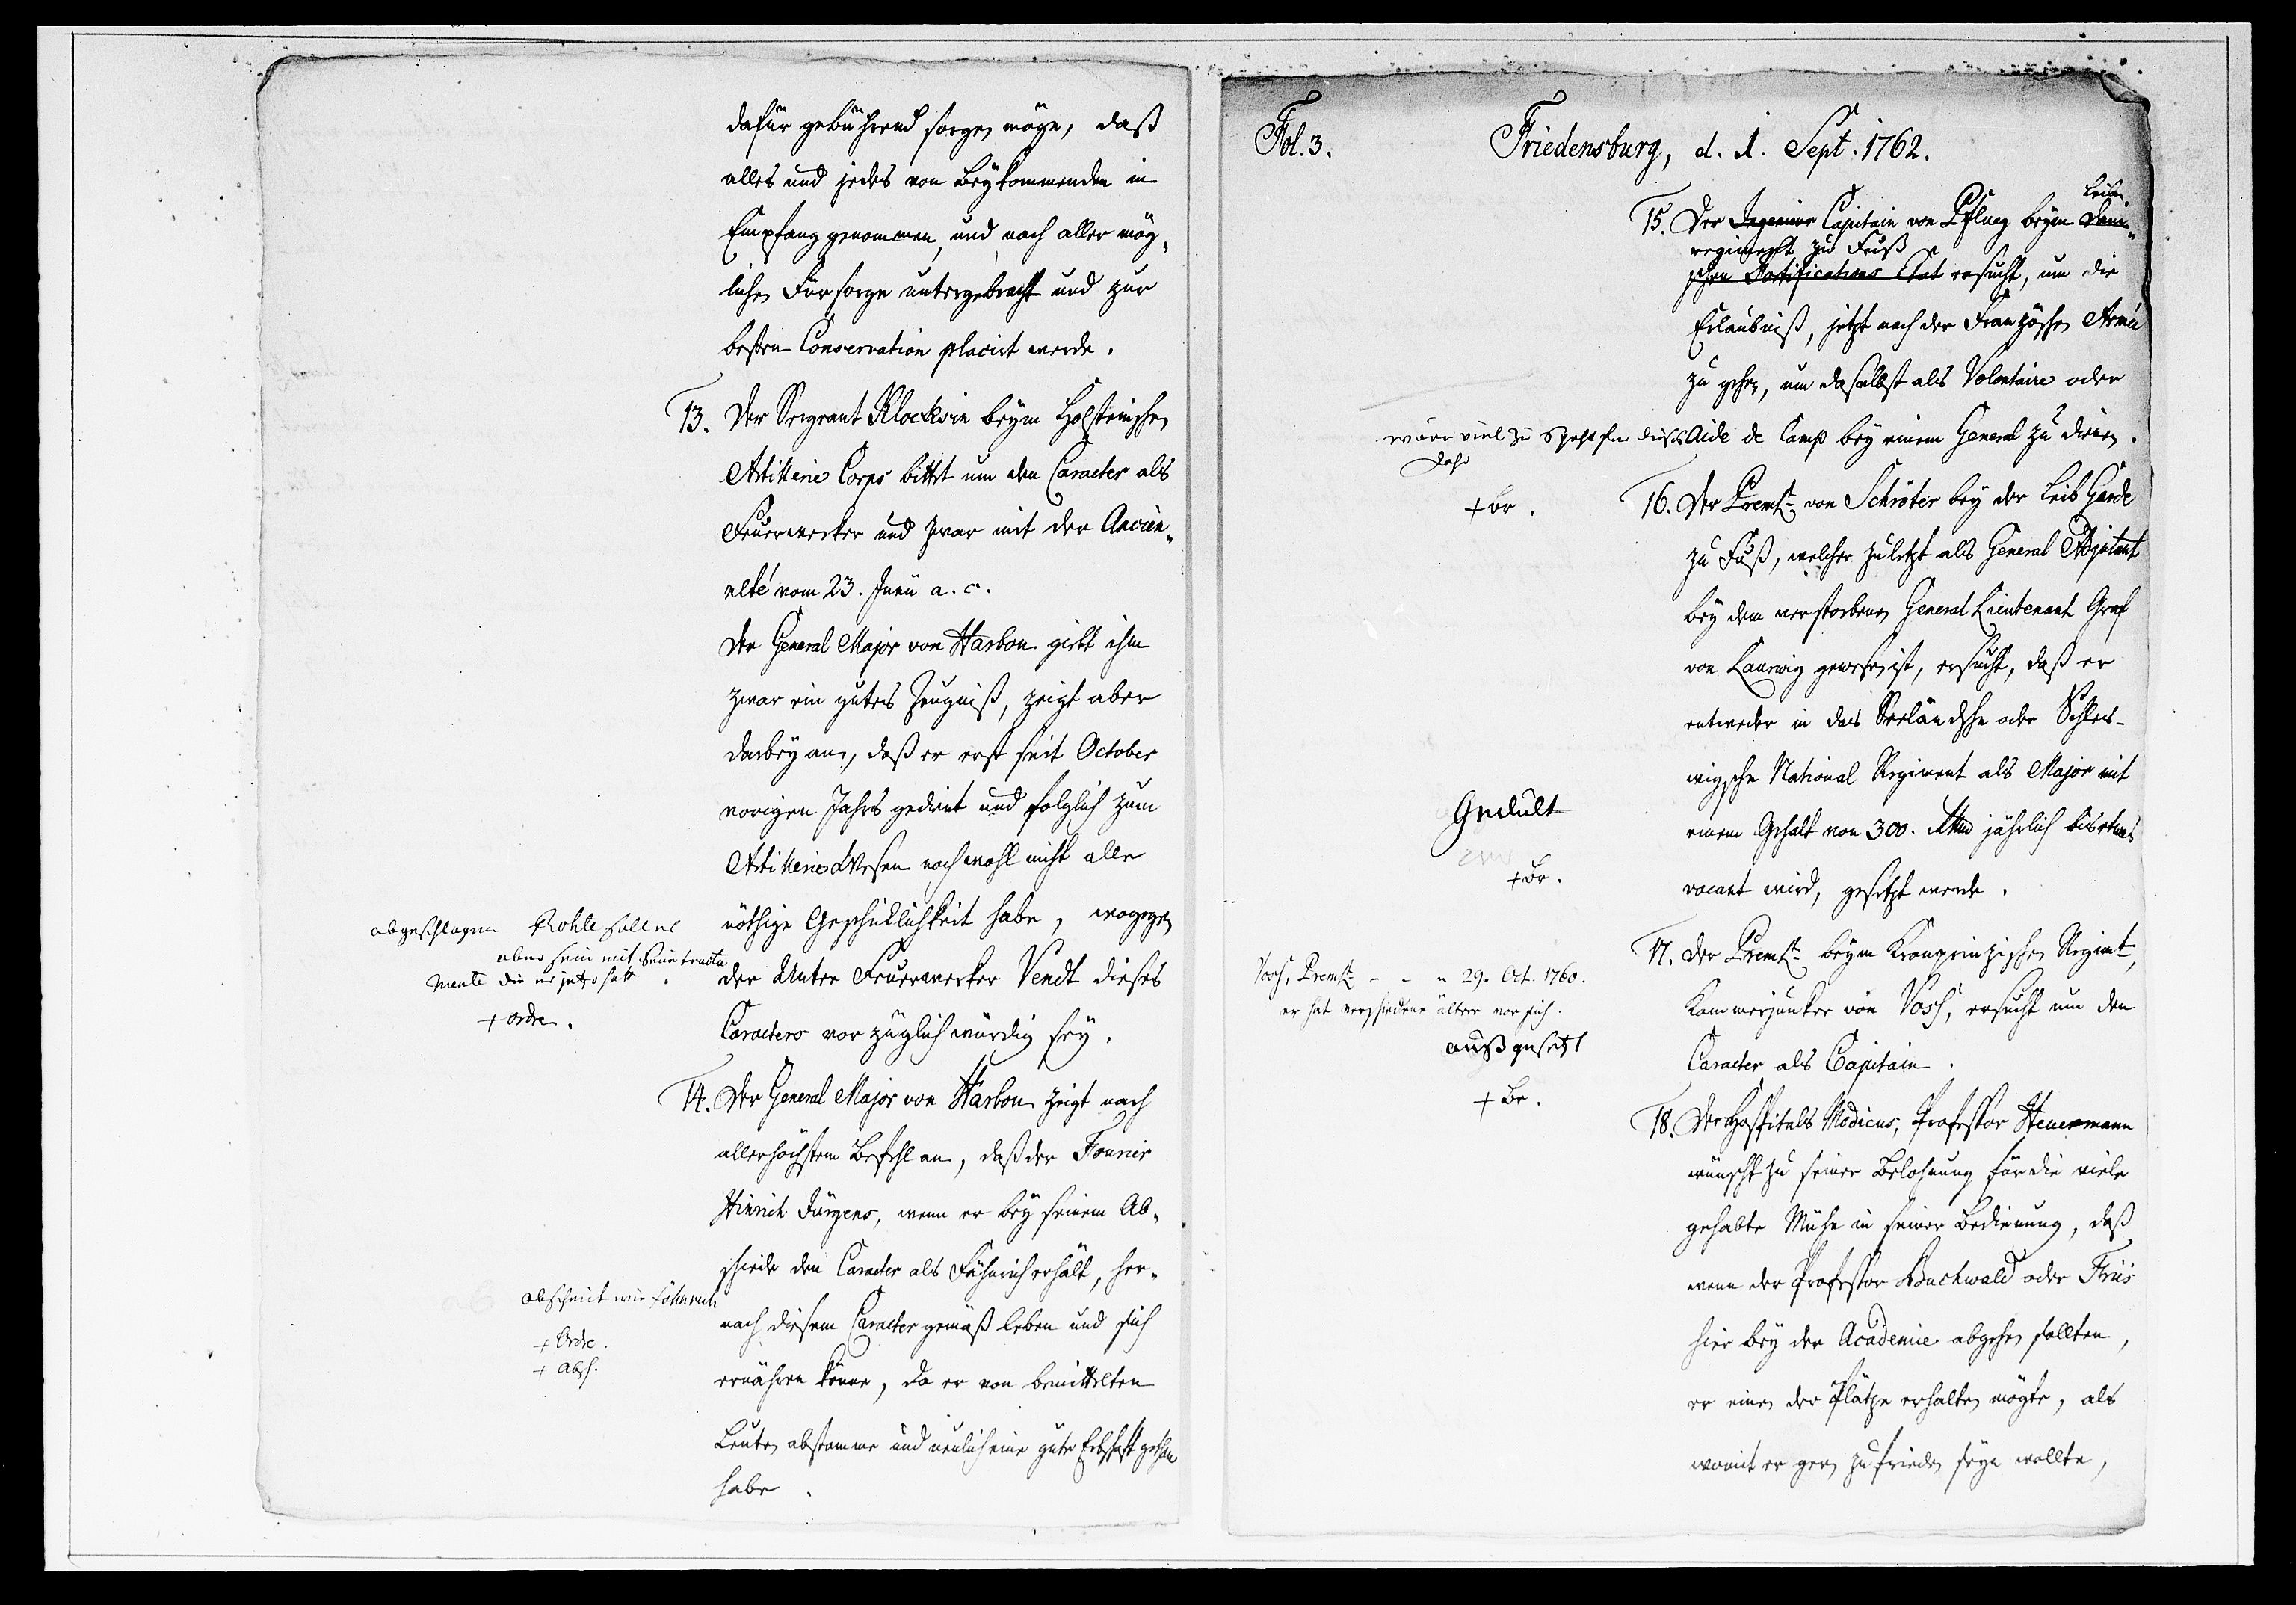 dafür gebührend sorgen möge, daß
alles und jedes von Beykommenden in
Empfang genommen, und nach aller mög„
lichen Fürsorge untergebracht und zur
besten Conservation placirt werde.
13. Der Sergeant Klocksin beym Holsteinschen
Artillerie Corps bittet um den Caracter als
Feuerwerker und zwar mit der Ancien„
neté vom 23. Junii a. c.
Der General Major von Harbou giebt ihm
zwar ein gutes Zeugniß, zeigt aber
dabey an, daß er erst seit October
vorigen Jahrs gedient und folglich zum
Artillerie Wesen noch wohl nicht alle
nöthige Geschicklichkeit habe, wogegen
der Unter Feuerwerker Vendt dieses
Caracters vorzüglich würdig sey.
abgeschlagen
aber sein mit seine tracta
mente die er jetzo hatt
+ ordre.
14. Der General Major von Harbou zeigt nach
allerhöchstem Befehl an, daß der Fourier
Hinrich Jürgens, wenn er bey seinem Ab„
schiede den Caracter als Fähnrich erhält, her„
nach diesem Caracter gemäß leben und sich
ernähren könne, da er von bemittelten
Leuten abstamme und neulich eine gute Erbschaft gethan
habe.
abscheidt wie fähnrich
+ Ordre.
+ Absch.
Fol. 3.
Friedensburg, d. 1. Sept. 1762.
15. Der Ingenieur Capitain von Pflueg beym Däni„
Leib
regiment zu Fuß
schen Fortifications Etat ersucht, um die
Erlaubniß, jetzt nach der Französchen Armée
zu gehen, um daselbst als Volontaire oder
Aide de Camp bey einem General zu dienen.
wäre viel zu speht für dieses
Jahr
+ Br.
16. Der Premlt. von Schröter bey der Leib Garde
zu Fuß, welcher zuletzt als General Adjutant
bey dem verstorbenen General Lieutenant Graf
von Laurwig gewesen ist, ersucht, daß er
entweder in das Seeländsche oder Schles-
wigsche National Regiment als Major mit
einem Gehalt von 300. Rthlr jährlich bis etwas
vacant wird, gesetzt werde.
Gedult
+ Br.
17. Der Premlt. beym Kronprinzischen Regimt,
Kammerjunker von Voss, ersucht um den
Caracter als Capitain.
Voss, Premlt. - - „ 29. Oct. 1760.
er hat verschiedene ältere vor sich.
außgesetzt
+ Br.
18. Der Hospitals Medicus, Professor Heuermann
wünscht zu seiner Belohnung für die viele
gehabte Mühe in seiner Bedienung, daß
wenn der Professor Buchwald oder Friis
hier bey der Academie abgehen sollten,
er einen der Plätze erhalten mögte, als
womit er gern zufrieden seyn wollte,